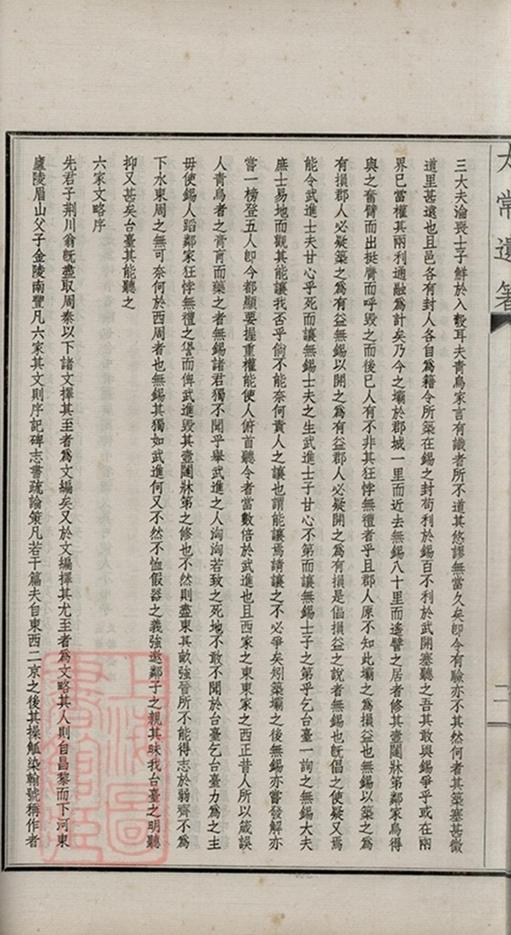 太常遺箸
三大夫淪喪士子鮮於入彀耳夫青烏家言有識者所不道其悠謬無當久矣即令有驗亦不其然何者其築塞甚微
道里甚遠也且邑各有封人各自為籍令所築在錫之封苟利於錫百不利於武開塞聽之吾其敢與錫爭乎或在兩
界已當權其兩利通融為計矣乃今之壩於郡城一里而近去無錫八十里而遙譬之居者修其壼闥牀笫鄰家烏得
與之奮臂而出挺膺而呼毀之而後已人有不非其狂悖無禮者乎且郡人原不知此壩之為損益也無錫以築之為
有損郡人必疑築之為有益無錫以開之為有益郡人必疑開之為有損是倡損益之說者無錫也既倡之使疑又焉
能令武進士夫甘心乎死而讓無錫士夫之生武進士子甘心不第而讓無錫士子之第乎乞台臺一詢之無錫大夫
庶士易地而觀其能讓我否乎倘不能奈何責人之讓也謂能讓焉請讓之不必爭矣矧築壩之後無錫亦嘗發解亦
嘗一榜登五人即今都顯要握重權能使人俯首聽令者當數倍於武進也且西家之東東家之西正昔人所以箴誤
人青烏者之膏肓而藥之者無錫諸君獨不聞乎舉武進之人洶洶若致之死地不敢不聞於台臺乞台臺力為之主
毋使錫人蹈鄰家狂悖無禮之愆而俾武進毀其壼闥牀笫之修也不然則盡東其畝強晉所不能得志於弱齊不為
下水東周之無可奈何於西周者也無錫其獨如武進何又不然不恤假器之義強遂鄰子之親其昧我台臺之明聽
抑又甚矣台臺其能聽之
六家文略序
先君子荊川翁既盡取周秦以下諸文擇其至者為文編矣又於文編擇其尤至者為文略其人則自昌黎而下河東
廬陵眉山父子金陵南豐凡六家其文則序記碑志書疏論策凡若干篇夫自東西二京之後其操觚染翰號稱作者